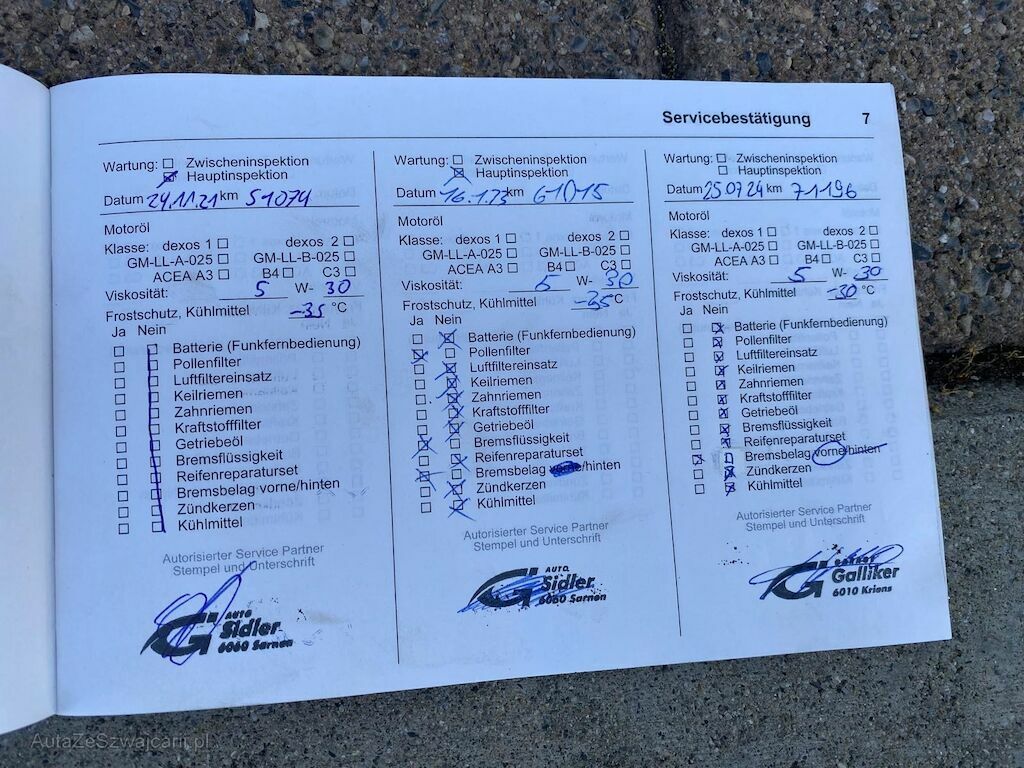 Servicebestätigung 7
Wartung: Zwischeninspektion
Hauptinspektion
Datum 24.11.21 km 51074
Motoröl
Klasse: dexos 1 dexos 2
GM-LL-A-025 GM-LL-B-025
ACEA A3 B4 C3
Viskosität: 5 W- 30
Frostschutz, Kühlmittel -35 °C
Ja Nein
Batterie (Funkfernbedienung)
Pollenfilter
Luftfiltereinsatz
Keilriemen
Zahnriemen
Kraftstofffilter
Getriebeöl
Bremsflüssigkeit
Reifenreparaturset
Bremsbelag vorne/hinten
Zündkerzen
Kühlmittel
Autorisierter Service Partner
Stempel und Unterschrift
AUTO
Sidler
6060 Sarnen
Wartung: Zwischeninspektion
Hauptinspektion
Datum 16.1.23 km 61015
Motoröl
Klasse: dexos 1 dexos 2
GM-LL-A-025 GM-LL-B-025
ACEA A3 B4 C3
Viskosität: 5 W- 30
Frostschutz, Kühlmittel -35 °C
Ja Nein
Batterie (Funkfernbedienung)
Pollenfilter
Luftfiltereinsatz
Keilriemen
Zahnriemen
Kraftstofffilter
Getriebeöl
Bremsflüssigkeit
Reifenreparaturset
Bremsbelag vorne/hinten
Zündkerzen
Kühlmittel
Autorisierter Service Partner
Stempel und Unterschrift
AUTO
Sidler
6060 Sarnen
Wartung: Zwischeninspektion
Hauptinspektion
Datum 25.07.24 km 71196
Motoröl
Klasse: dexos 1 dexos 2
GM-LL-A-025 GM-LL-B-025
ACEA A3 B4 C3
Viskosität: 5 W- 30
Frostschutz, Kühlmittel -30 °C
Ja Nein
Batterie (Funkfernbedienung)
Pollenfilter
Luftfiltereinsatz
Keilriemen
Zahnriemen
Kraftstofffilter
Getriebeöl
Bremsflüssigkeit
Reifenreparaturset
Bremsbelag vorne/hinten
Zündkerzen
Kühlmittel
Autorisierter Service Partner
Stempel und Unterschrift
Galliker
6010 Kriens
AutaZeSzwajcarii.pl